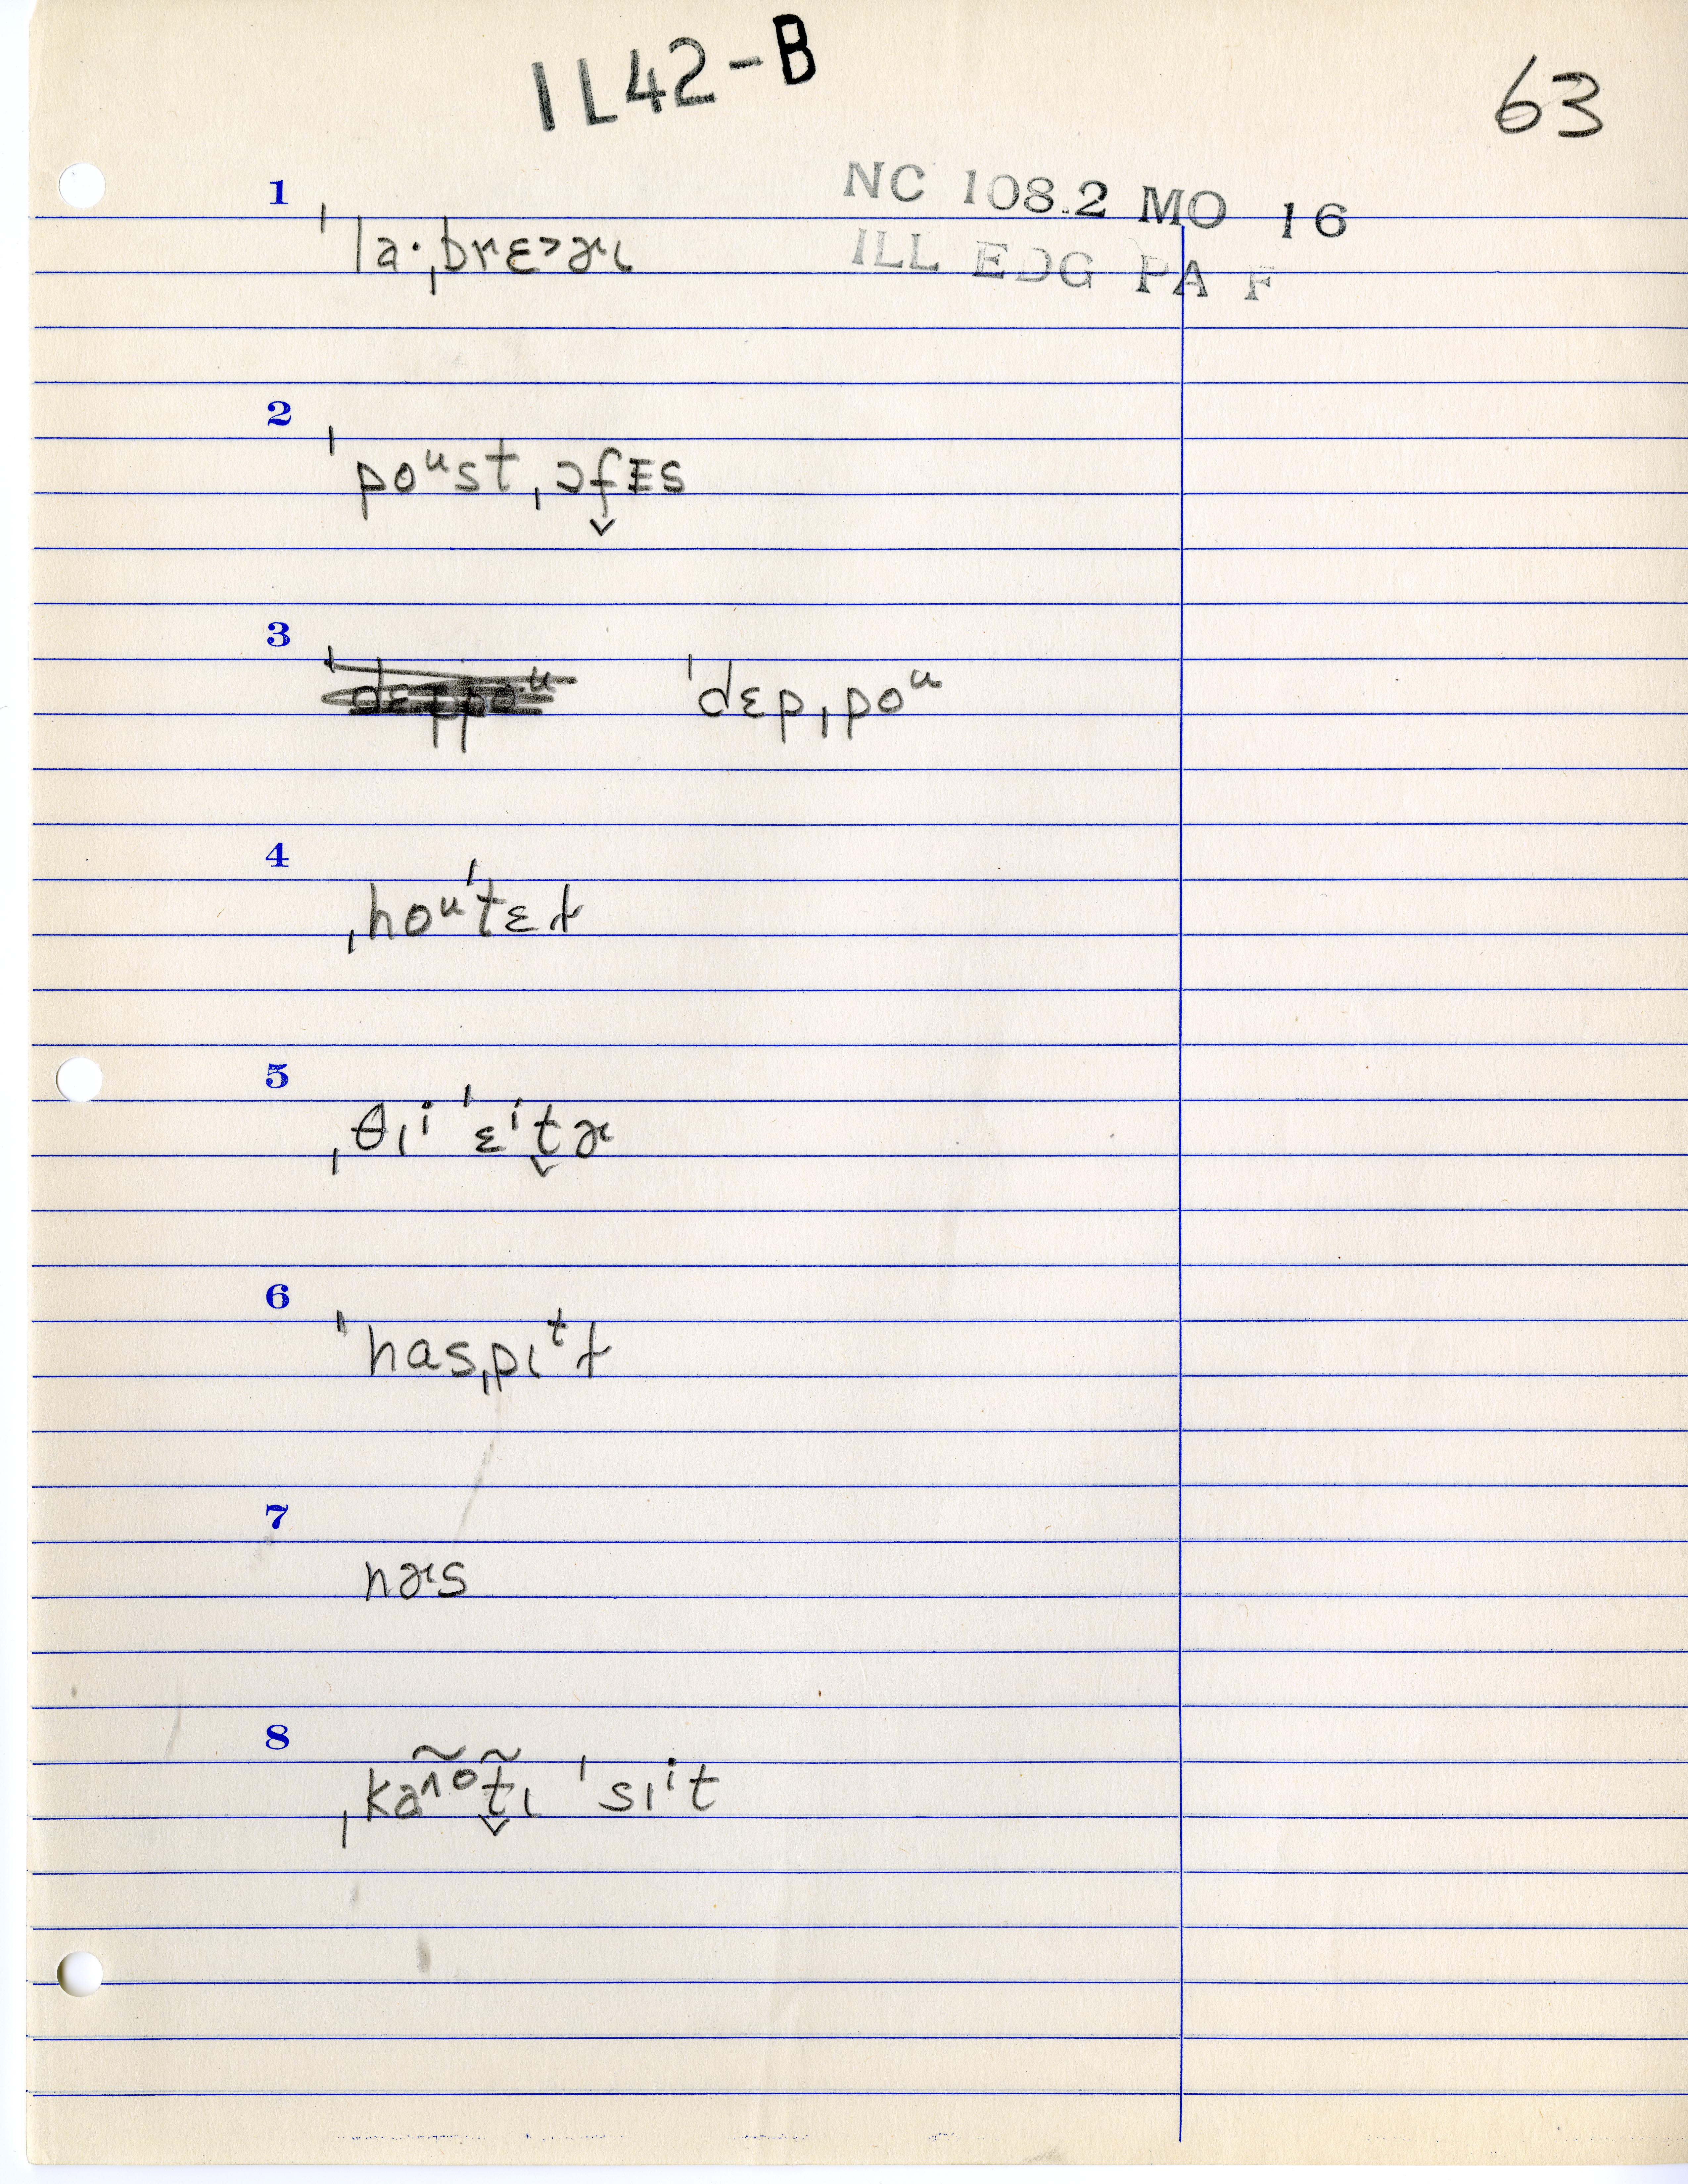 IL42-B
63
NC 108.2 MO 16
ILL EDG PA F
1
ˈlaˑˌbrɛ˃ɚɪ
2
ˈpoᵘstˌɔf̬ɪs
3
ˈdɛpˌpoᵘ
4
ˌhoᵘˈtɛɫ
5
ˌθɪⁱˈɛⁱt̬ɚ
6
ˈhasˌpɪᵗɫ
7
nɚs
8
ˌkaᶺõt̬̃ɪ ˈsɪⁱt